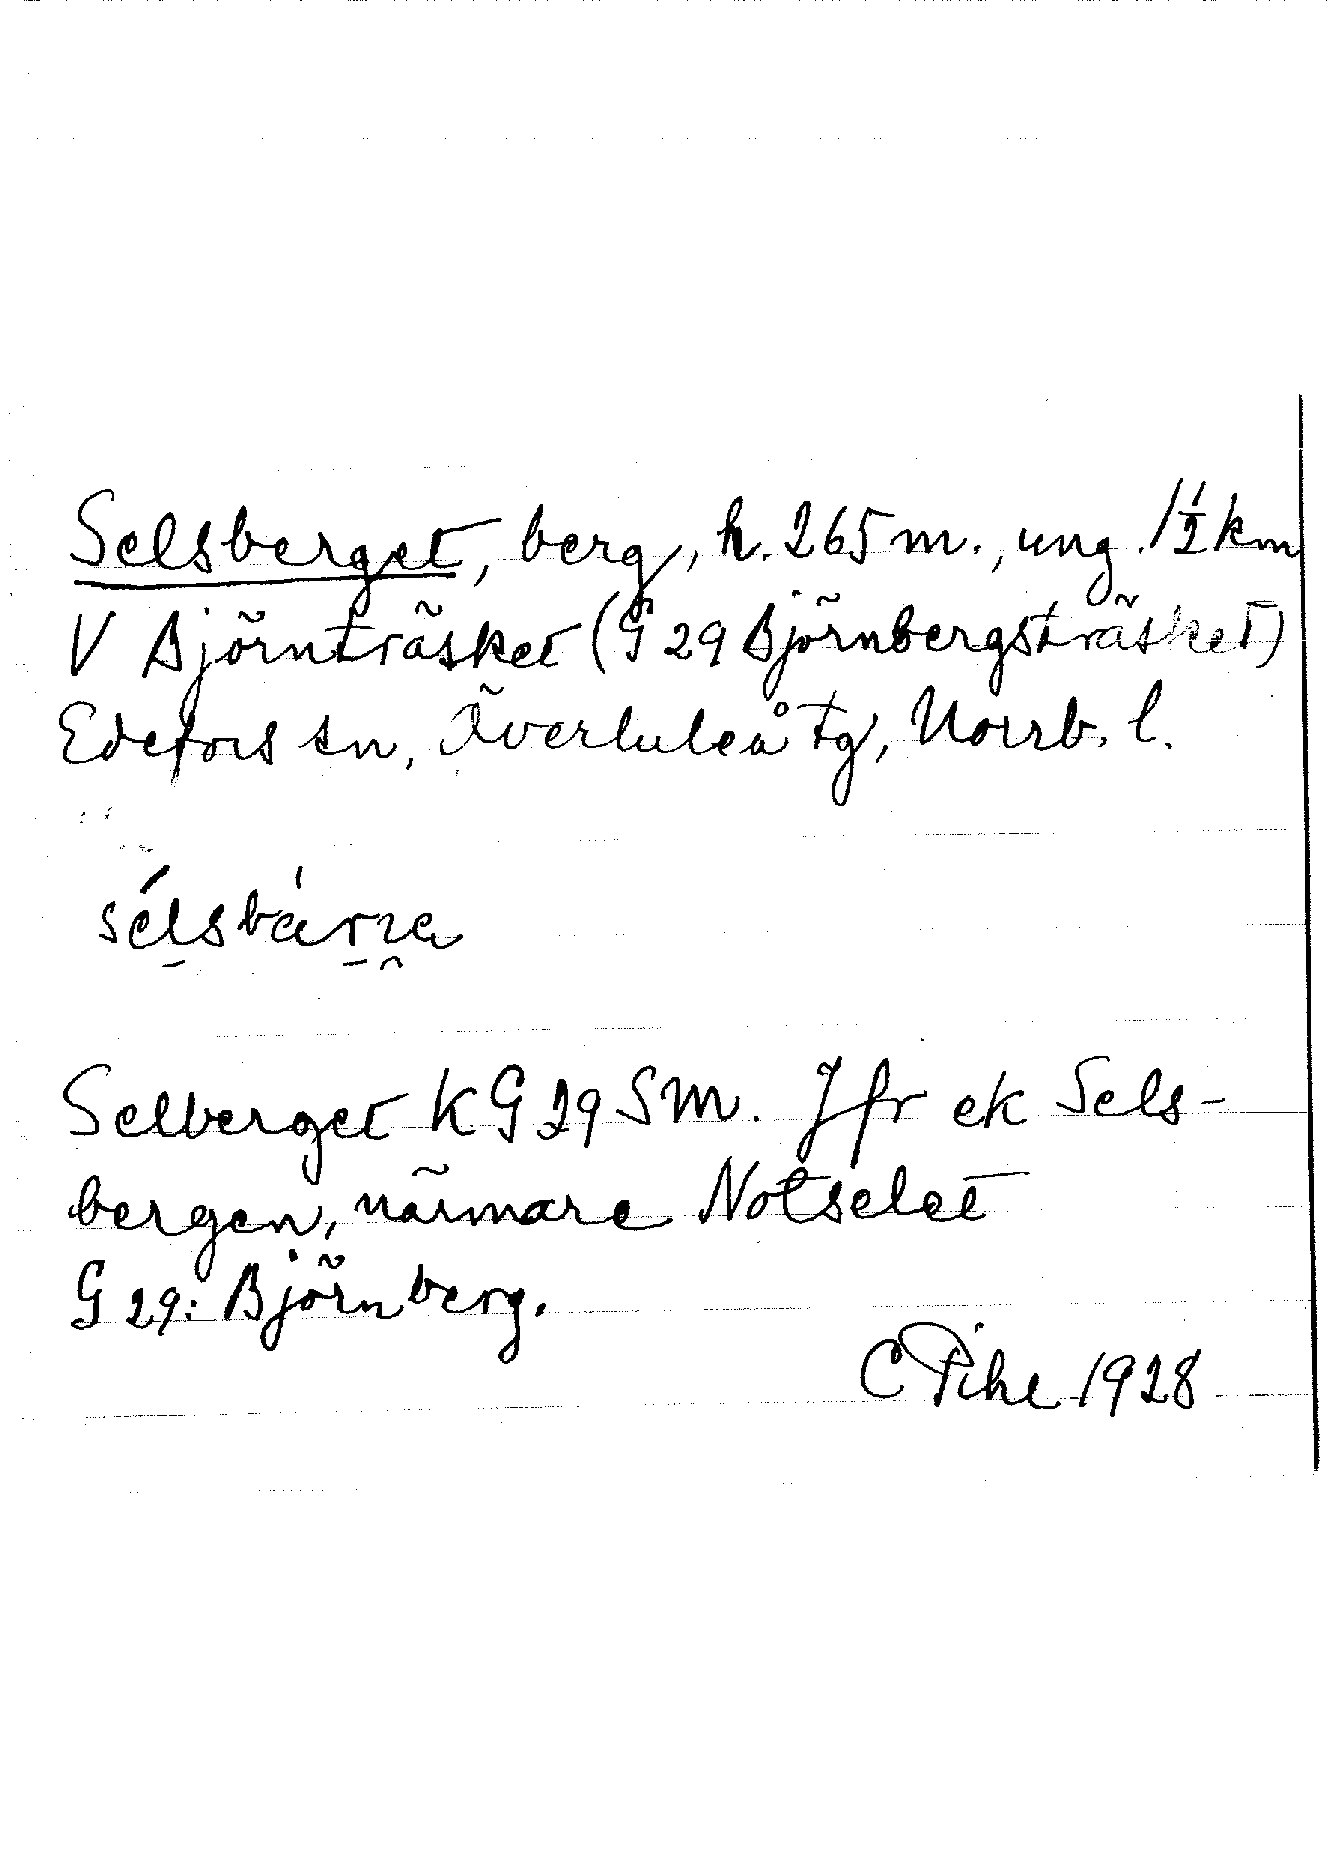 Selsberget, berg, h. 265 m., ung. 1½ km
V Björnträsket (G 29 Björnbergsträsket)
Edefors sn, Överluleå tg, Norrb. l.
Selberget K G 29 S M. Jfr ek Sels-
bergen, närmare Notselet
G 29: Björnberg.
C Pihl 1928